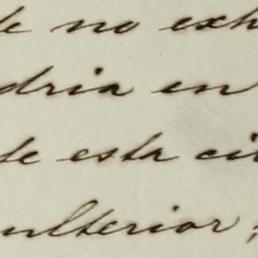 de no exh
dria en
de esta ci
ulterior;